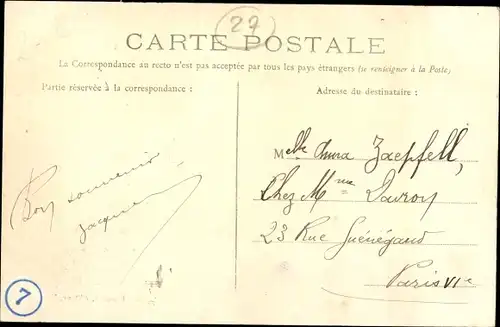 27
CARTE POSTALE
La Correspondance au recto n'est pas acceptée par tous les pays étrangers (se renseigner à la Poste)
Partie réservée à la correspondance :
Adresse du destinataire :
Bon souvenir
Jacques
Melle Anna Zaepfell,
Chez Mme Davroy
23 Rue Guénégaud
Paris VIe
7